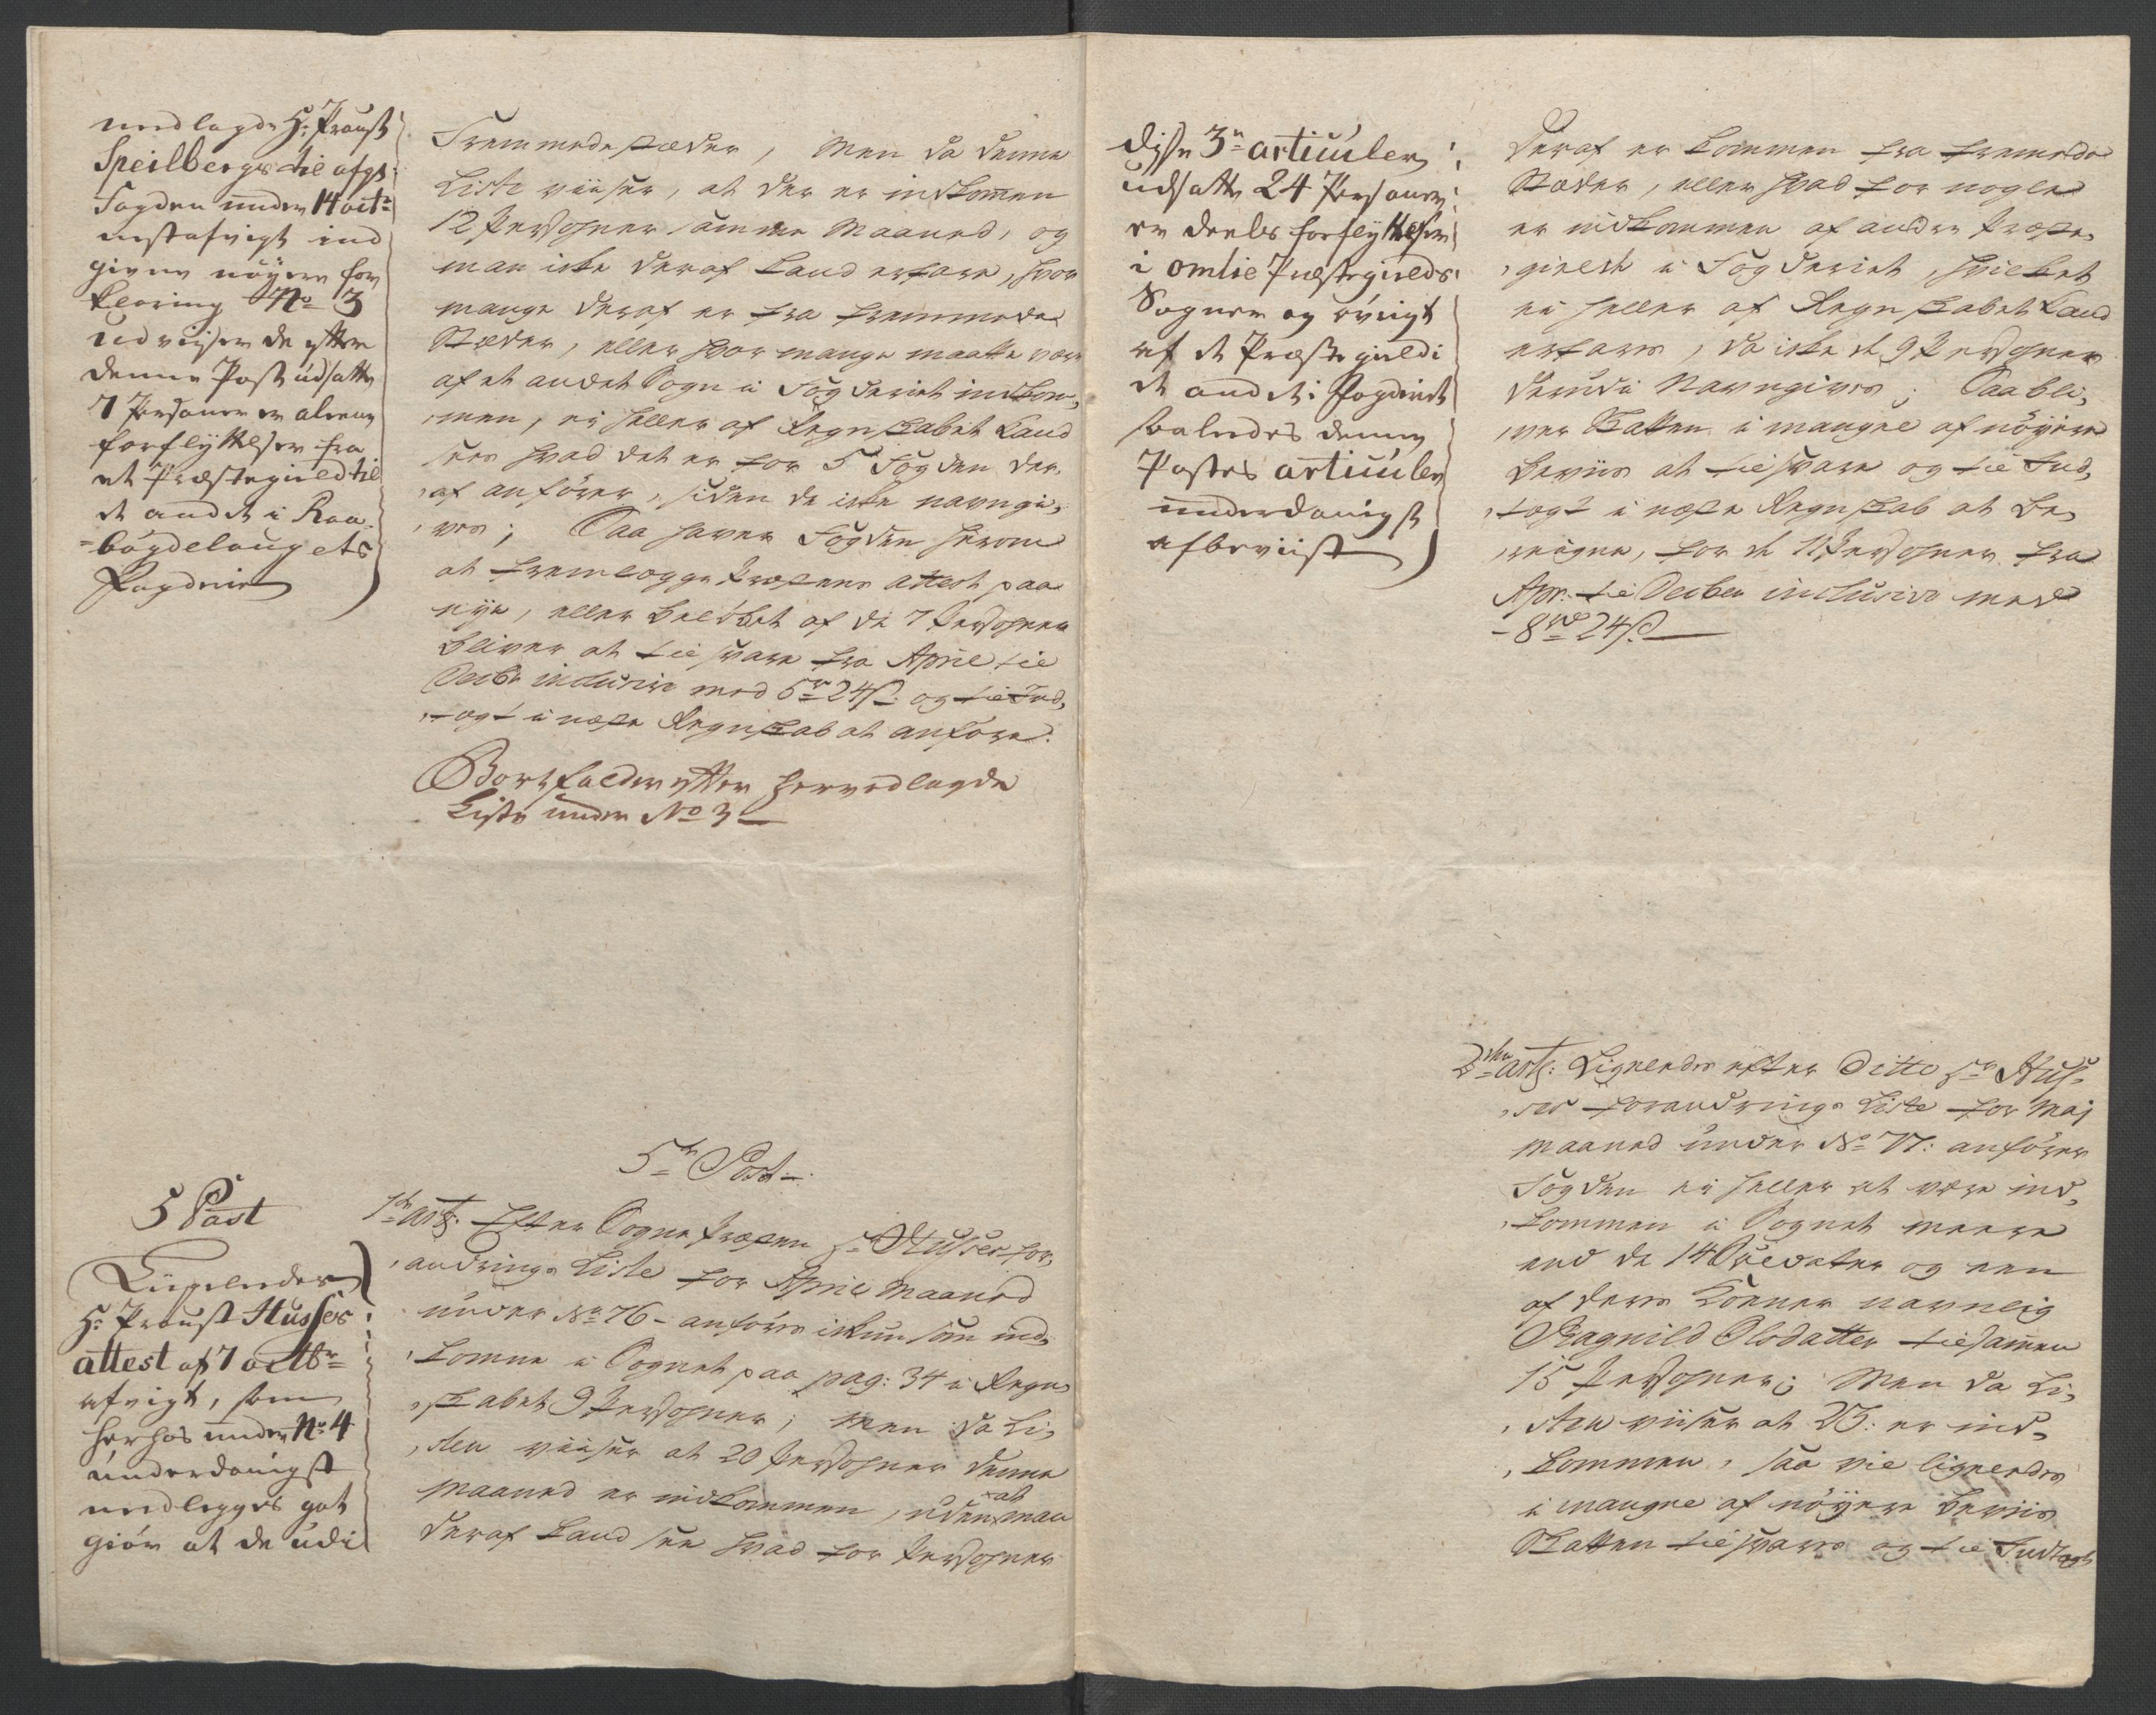 medlagde Hr: Provst
Speilbergs til afgl:
Fogden under 14 octr
nestafvigt ind
givne nöyere for
klaring No 3
udviiser de efter
denne Post udsatte
7 Personer er alleene
forflyttelser fra
et Præstegield til
et andet i Raa-
bögdelaugets
Fogderie
Fremmede stæder, Men da denne
Liste viiser, at der er indkommen
12 Persohner samme Maaned, og
man icke deraf kand erfare, hvor
mange deraf er fra fremmede
Stæder, eller hvor mange maatte være
af et andet Sogn i Fogderiet indkom-
men, ei heller af Regnskabet kand
sees hvad det er for 5 Fogden der-
af anförer, siden de icke navngi-
ves; Saa haver Fogden herom
at fremlegge Præstens attest paa
nye, eller belöbet af de 7 Persohner
bliver at tilsvare fra April til
Decbr inclusive med 5 rd 24 s. og til Ind-
tegt i næste Regnskab at anföre.
Bortfalder efter hervedlagde
Liste under No 3
5te Post
5 Post
1te art: Efter Sogne Præsten Hr Husses for-
andrings Liste for April Maaned
under No 76 - anföres ikkun som ind-
komne i Sognet paa pag: 34 i Regn-
skabet 9 Persohner; Men da Li-
sten viiser at 20 Persohner denne
Maaned er indkommen, uden at man
deraf kand see hvad for Persohner
Ligeleedes
Hr: Provst Husses
attest af 7 octbr
afvigt, som
herhos under No 4
underdanigst
medlegges got
giör at de udi
disse 3de articuler
udsatte 24 Personer
er deels forflyttelser
i omtie Præstegields
Sogner og övrigt
af et Præstegield i
et andet i Fogderiet
saaledes denne
Postes articuler
underdanigst
afbeviist
deraf er kommen fra fremmede
Stæder, eller hvad for nogle
er indkommen af andre Præste-
gield i Fogderiet, hvilket
ei heller af Regnskabet kand
erfares, da icke de 9 Persohner
derudi Navngives; Saa bli-
ver Skatten i mangel af nöyere
beviis at tilsvare og til Ind-
tegt i næste Regnskab at be-
reigne, for de 11 Persohner fra
Apr: til Decbr inclusive med
- 8 rd 24 s.
2den art: Ligeledes efter Ditto Hr Hus-
ses forandrings Liste for Maj
Maaned under No 77: anförer
Fogden ei heller at være ind-
kommen i Sognet meere
end de 14 Soldater og een
af deres Koener navnlig
Ragnild Olsdatter tilsamen
15 Persohner; Men da Li-
sten viiser at 23: er ind-
kommen, saa vil ligeledes
i mangel af nöyere beviis
Skatten tilsvares og til Indtegt